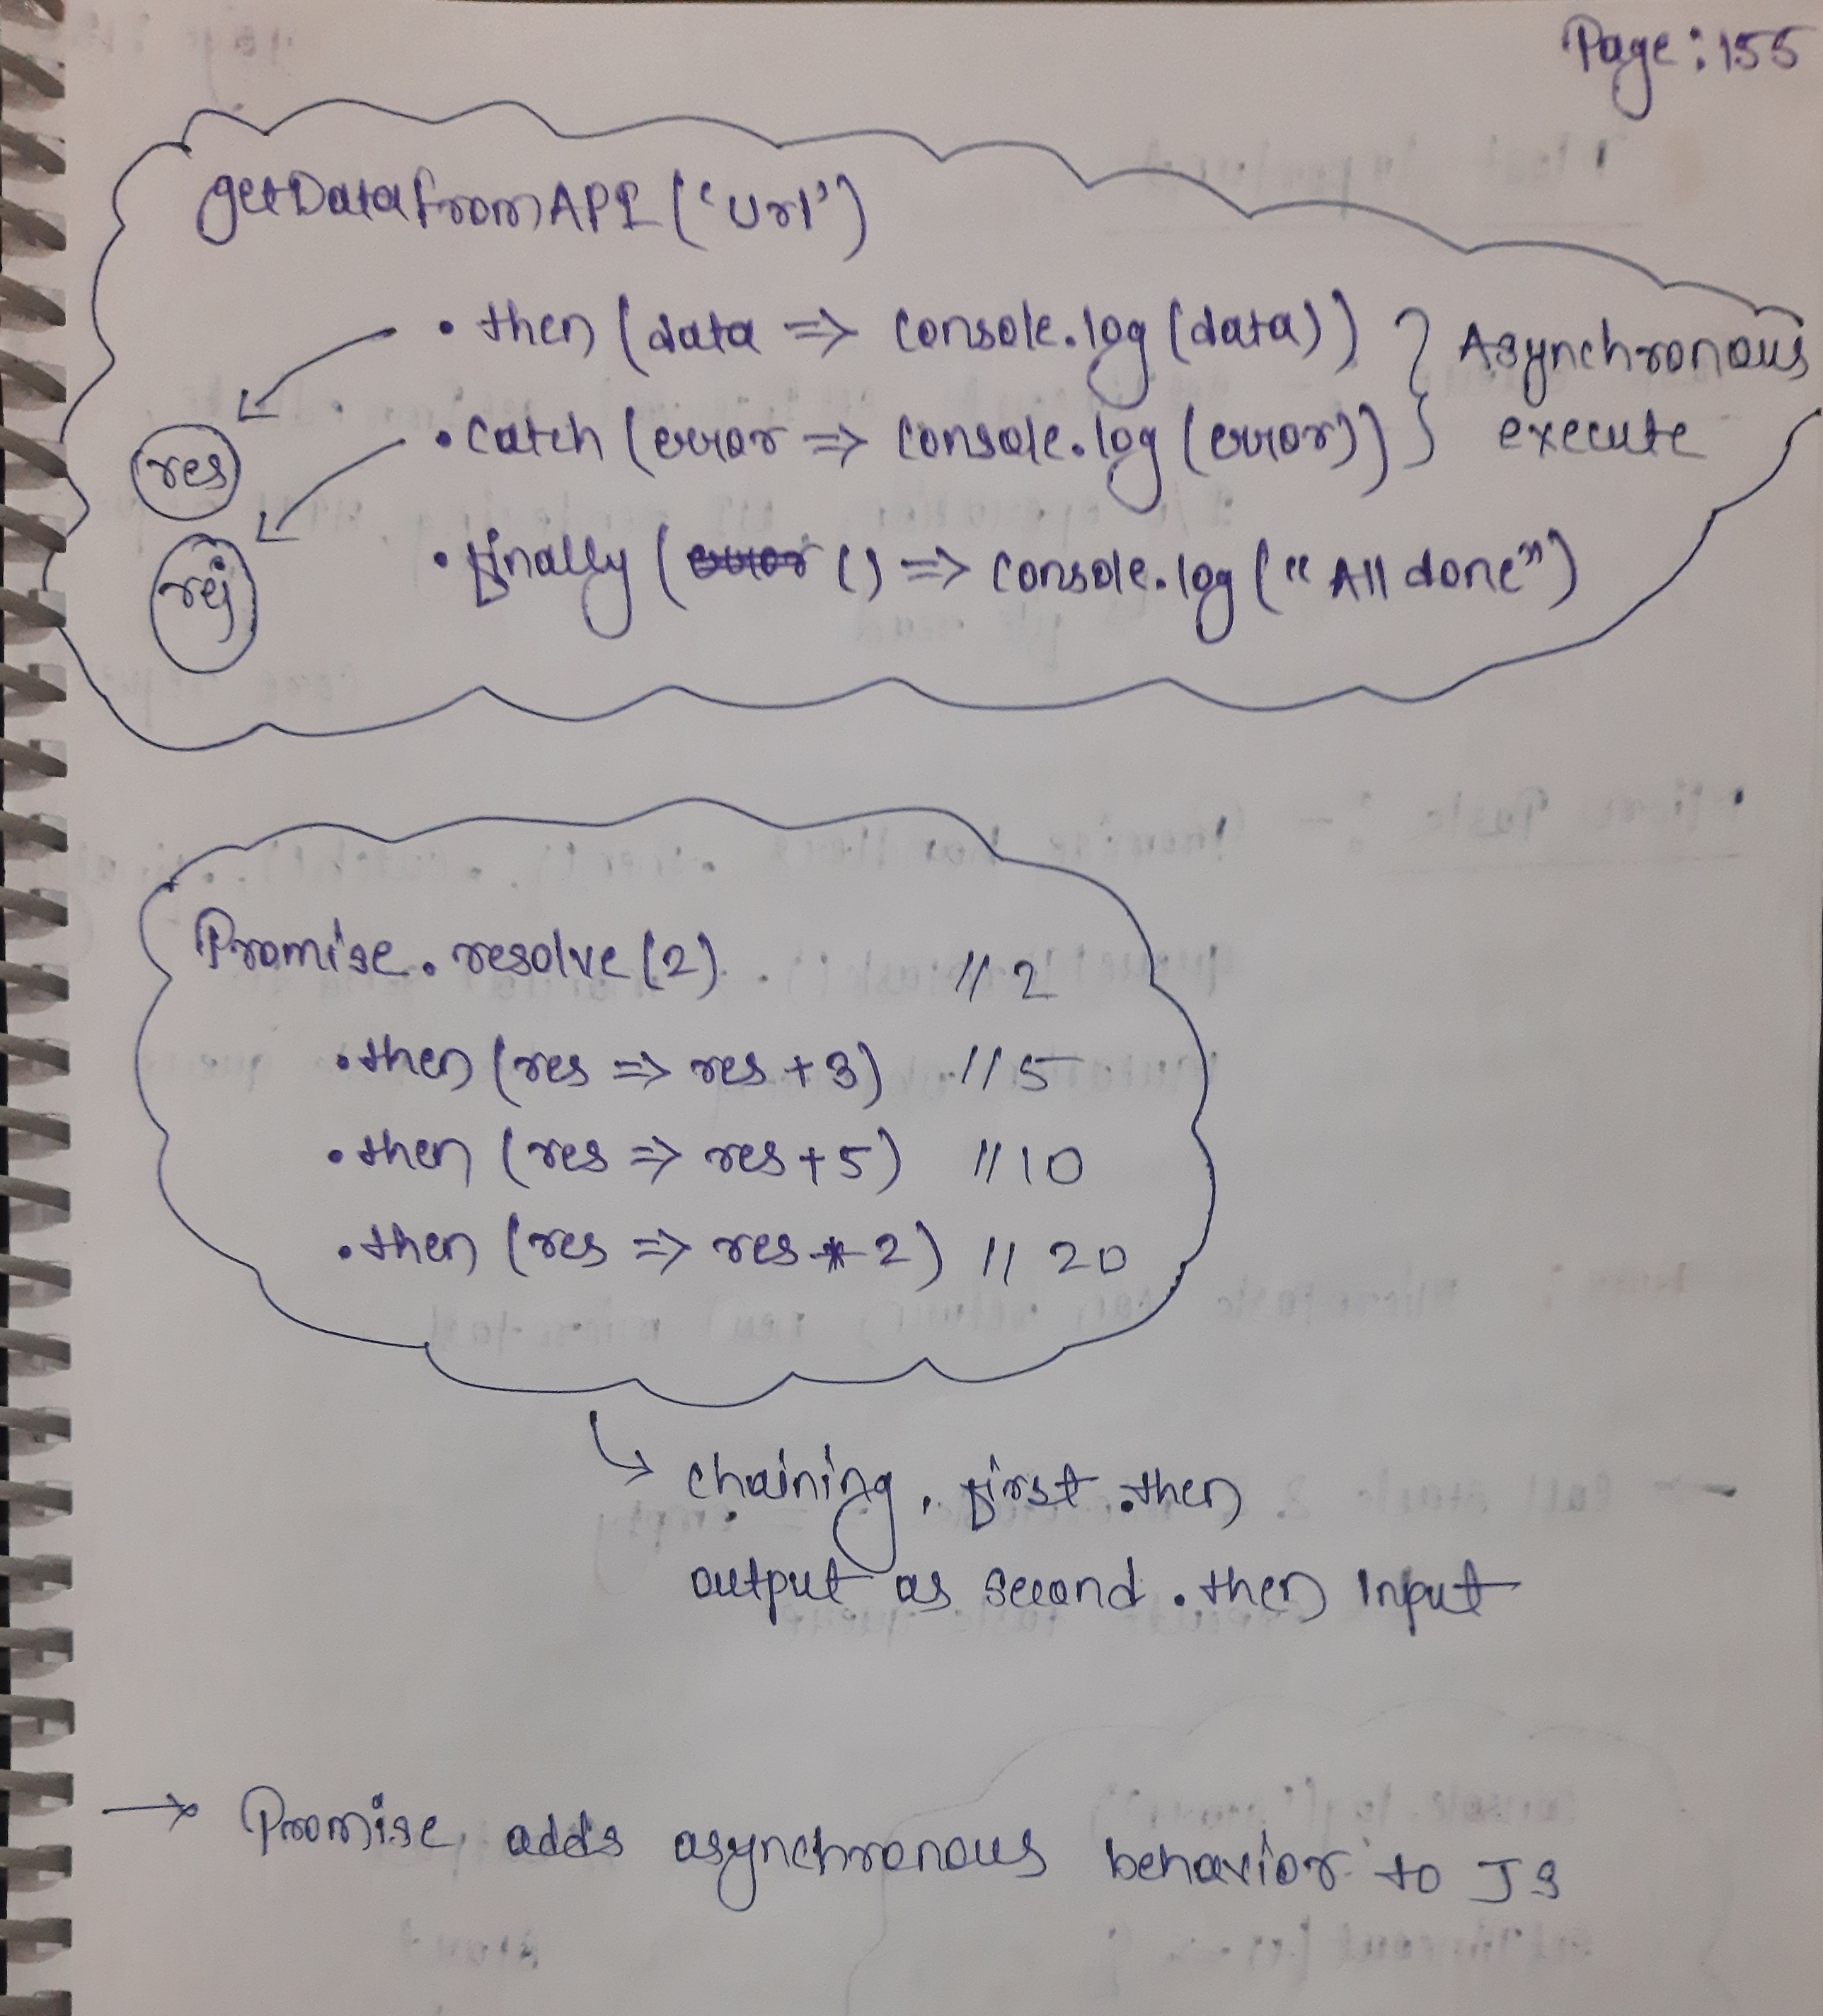 Page: 155
getDataFromAPI ('url')
.then (data => console.log (data)) } Asynchronous
.catch (error => console.log (error)) } execute
res
.finally (error () => console.log ("All done")
rej
Promise.resolve (2) // 2
.then (res => res + 3) // 5
.then (res => res + 5) // 10
.then (res => res * 2) // 20
↳ chaining, first .then
output as second .then input
→ Promise adds asynchronous behavior to JS